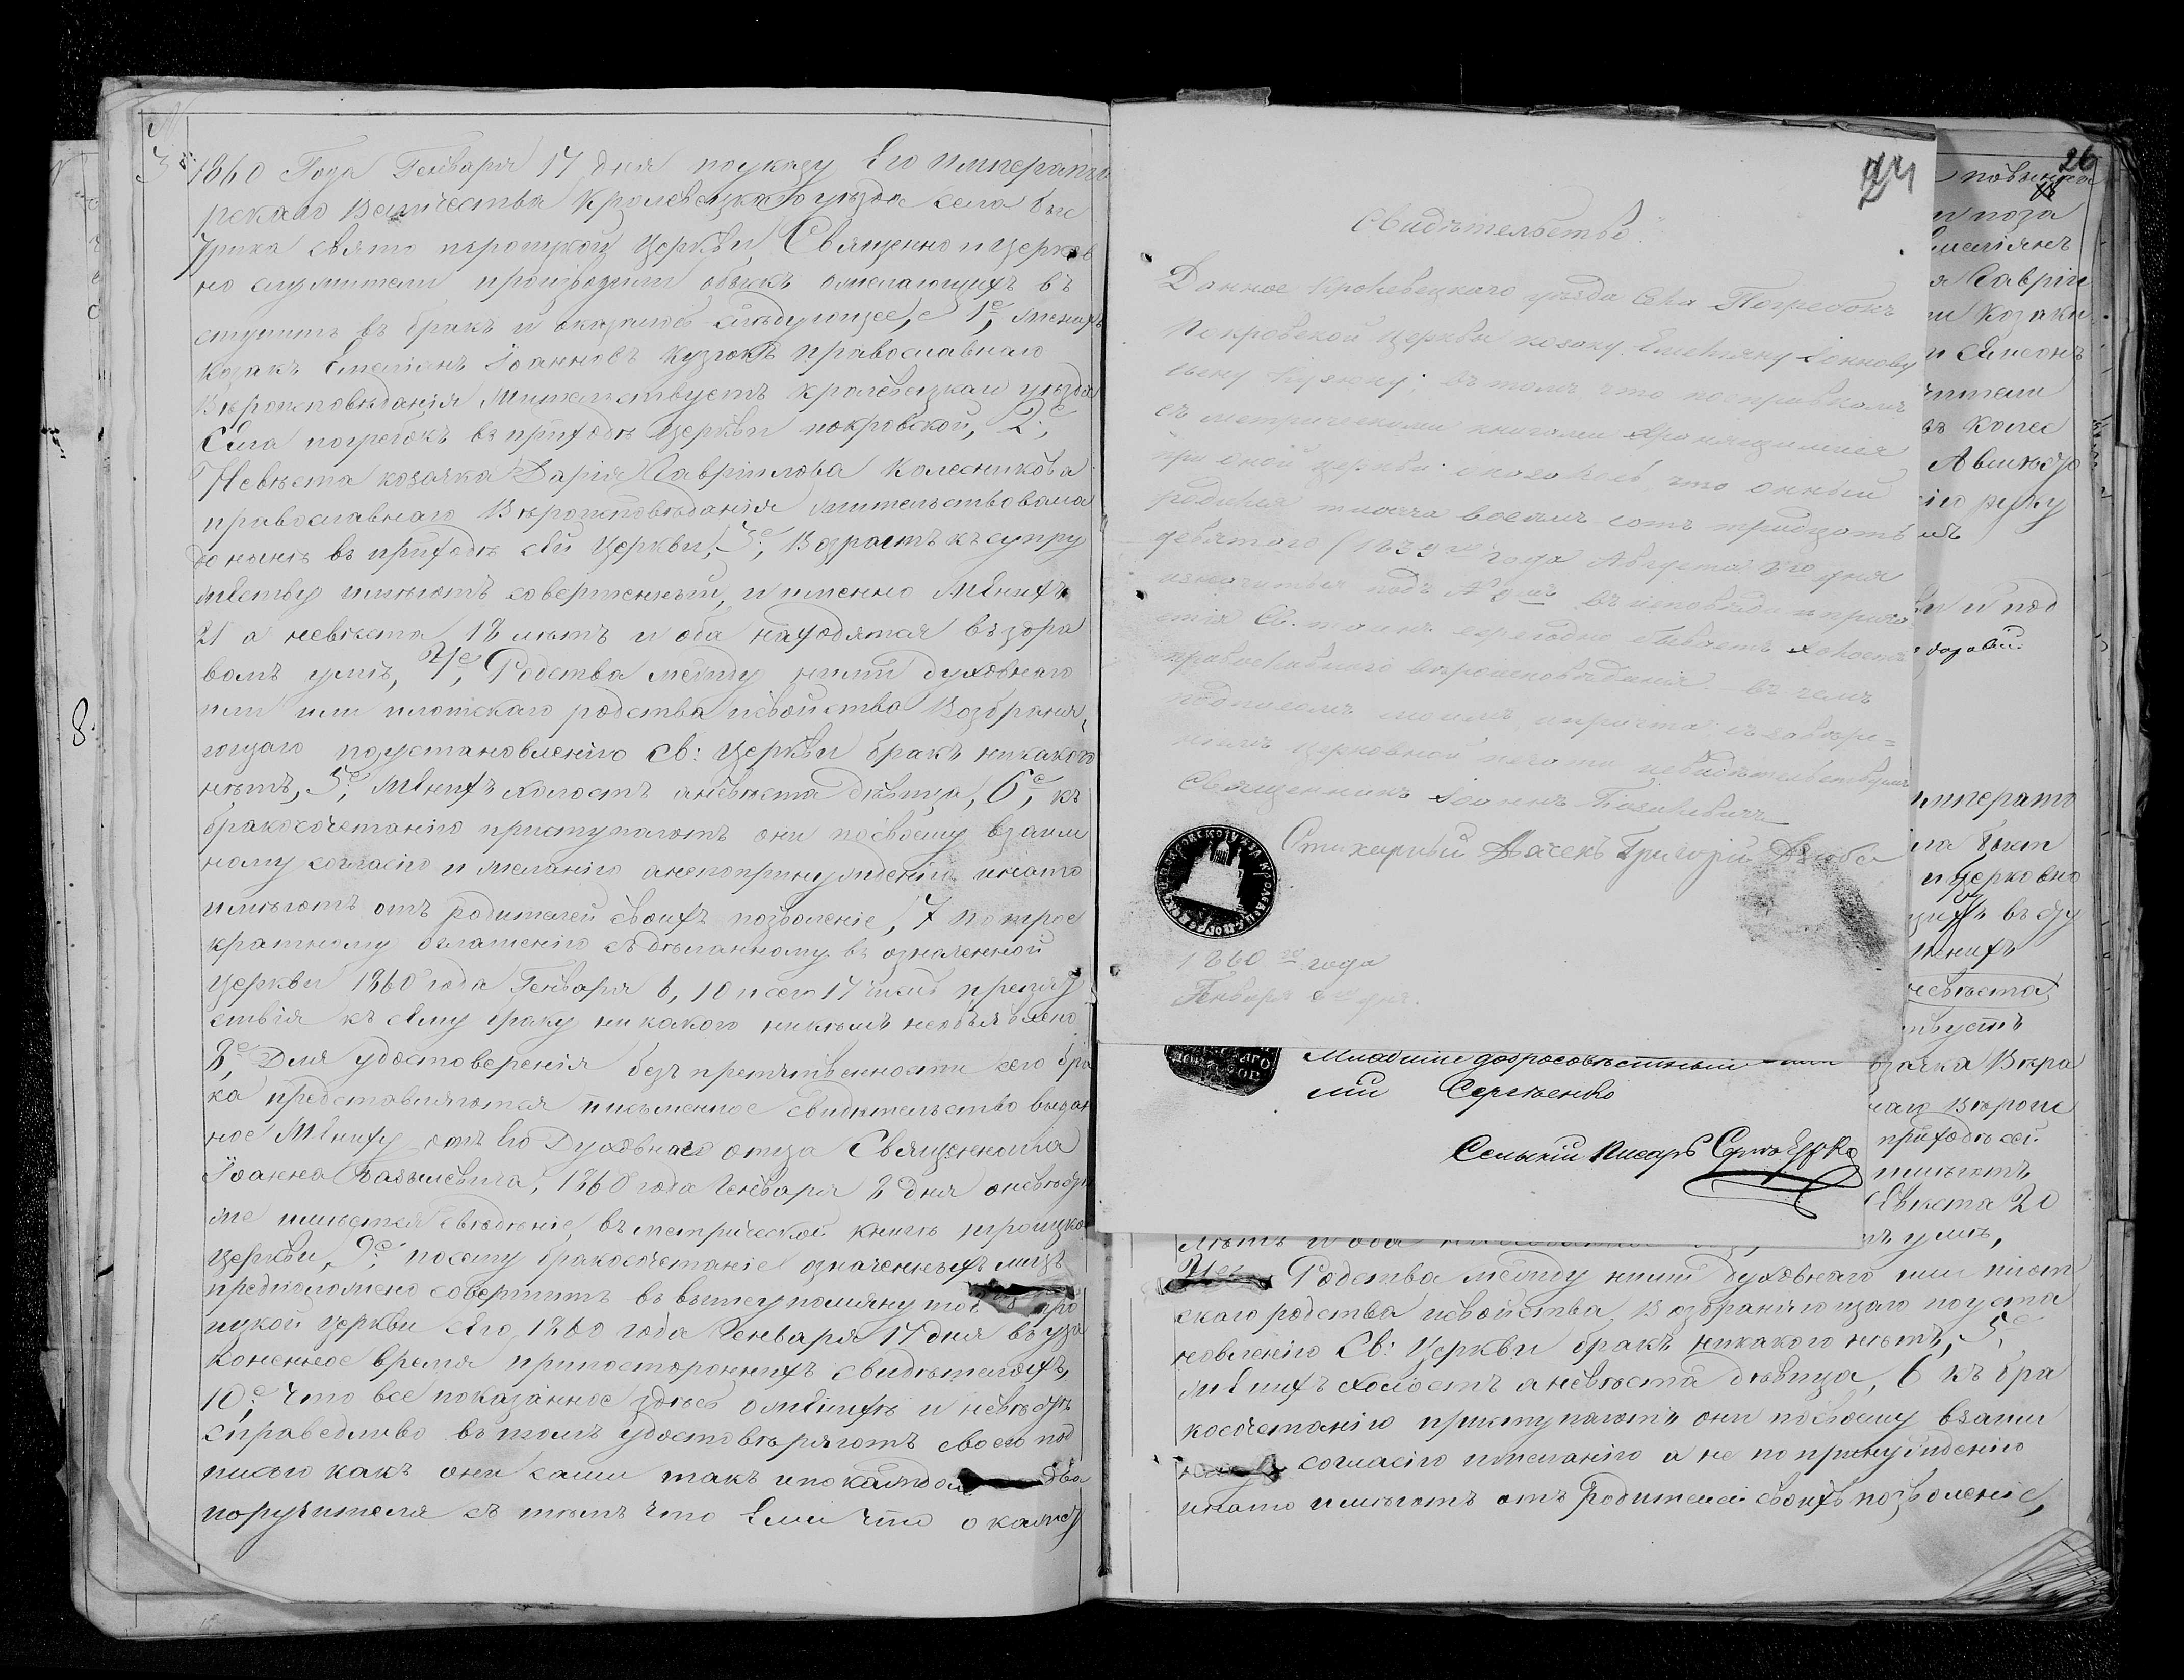 №
3
1860 Года Генваря 17 дня по указу Его Императо
рскаго Величества Кролевецкаго уѣзда села Быс
трика свято троицкой Церкви, Священно и церков
но служители производили обыскъ о желающихъ въ
ступить въ бракъ и оказалось слѣдующее, 1е, Женихъ
козакъ Емелиянъ Іоанновъ Кузюкъ православнаго
Вѣроисповѣданія жительствуетъ кролевецкаго уѣзда
Села погребокъ въ приходѣ Церкви покровской, 2е,
Невѣста козачка Дарія Гавріилова Колесникова
православнаго Вѣроисповѣданія жительствовала
до нынѣ въ приходѣ сей Церкви, 3е, Возрастъ къ супру
жеству имѣютъ совершенный, и именно Женихъ
21 а невѣста 18 лѣтъ и оба находятся въ здра
вомъ умѣ, 4е, Родства между ними духовнаго
или или плотскаго родства и свойства Возбраня
ющаго по установленію св: Церкви бракъ никакого
нѣтъ, 5е, Женихъ холостъ а невѣста дѣвица, 6е, къ
бракосочетанію приступаютъ они по своему взаим
ному согласію и желанію а не по принужденію и на то
имѣютъ отъ родителей своихъ позволеніе, 7 По трое
кратному оглашенію сдѣланному въ означенной
Церкви 1860 года Генваря 6, 10 и сего 17 чиселъ препят
ствія къ сему браку никакого никемъ необъявлено
8е, Для удостоверенія безпрепятственности сего бра
ка представляются письменное свидѣтельство выдан
ное Жениху отъ его Духовнаго отца Священника
Іоанна Базилевича, 1860 года Генваря 8 дня о невѣстѣ
же имѣется свѣдѣніе въ метрической книгѣ троицкой
Церкви, 9е, посему бракосочетаніе означенныхъ лицъ
предположено совершить въ вышеупомянутой тро
ицкой Церкви сего 1860 года Генваря 17 дня въ уза
коненное время при постороннихъ свидѣтеляхъ,
10е, Что все показанное здѣсь о женихѣ и невѣстѣ
справедливо въ томъ удостовѣряютъ своею под
писью какъ они сами такъ и по каждомъ два
поручителя съ тѣмъ что Если что окажет
8.
24
Свидѣтельство.
Данное Кролевецкаго уѣзда Села Погребокъ
Покровской Церкви козаку Емельяну Іоннову
сыну Кузюку; въ томъ что по справкамъ
съ метрическими книгами хранящимися
при оной церкви оказалось что онный
родился тысяча восемь сотъ тридцать
девятого (1839го года Августа 8го дня
значиться подъ № въ исповѣди и прича
стія Св. таинъ ежегодно бываетъ холостъ
православнаго вѣроисповѣданія. въ чемъ
подписомъ моимъ и причта съ завѣре=
ніемъ церковной печати свидѣтельствуемъ
Священникъ Іоаннъ Базилевичъ
Стихарный Дячекъ Григорій Дзюба
1860го года
Генваря 8го дня.
Младшій добросовѣстный
Сергѣенко
Сельскій Писарь
26
поза
Гавріи
Козаки
Колес
руку
и под
Императо
и Церковно
въ су
Женихъ
невѣста
Вѣроис
приходѣ сей
имѣютъ
Невѣста 20
лѣтъ и оба умѣ,
Родства между ними духовнаго или плот
скаго родства и свойства Возбраняющаго по уста
новленію Св: Церкви бракъ никакого нѣтъ, 5е
женихъ холостъ а невѣста дѣвица, 6 къ бра
косочетанію приступаютъ они по своему взаим
согласію и желанію а не по принужденію
и на то имѣютъ отъ Родителей своихъ позволеніе,